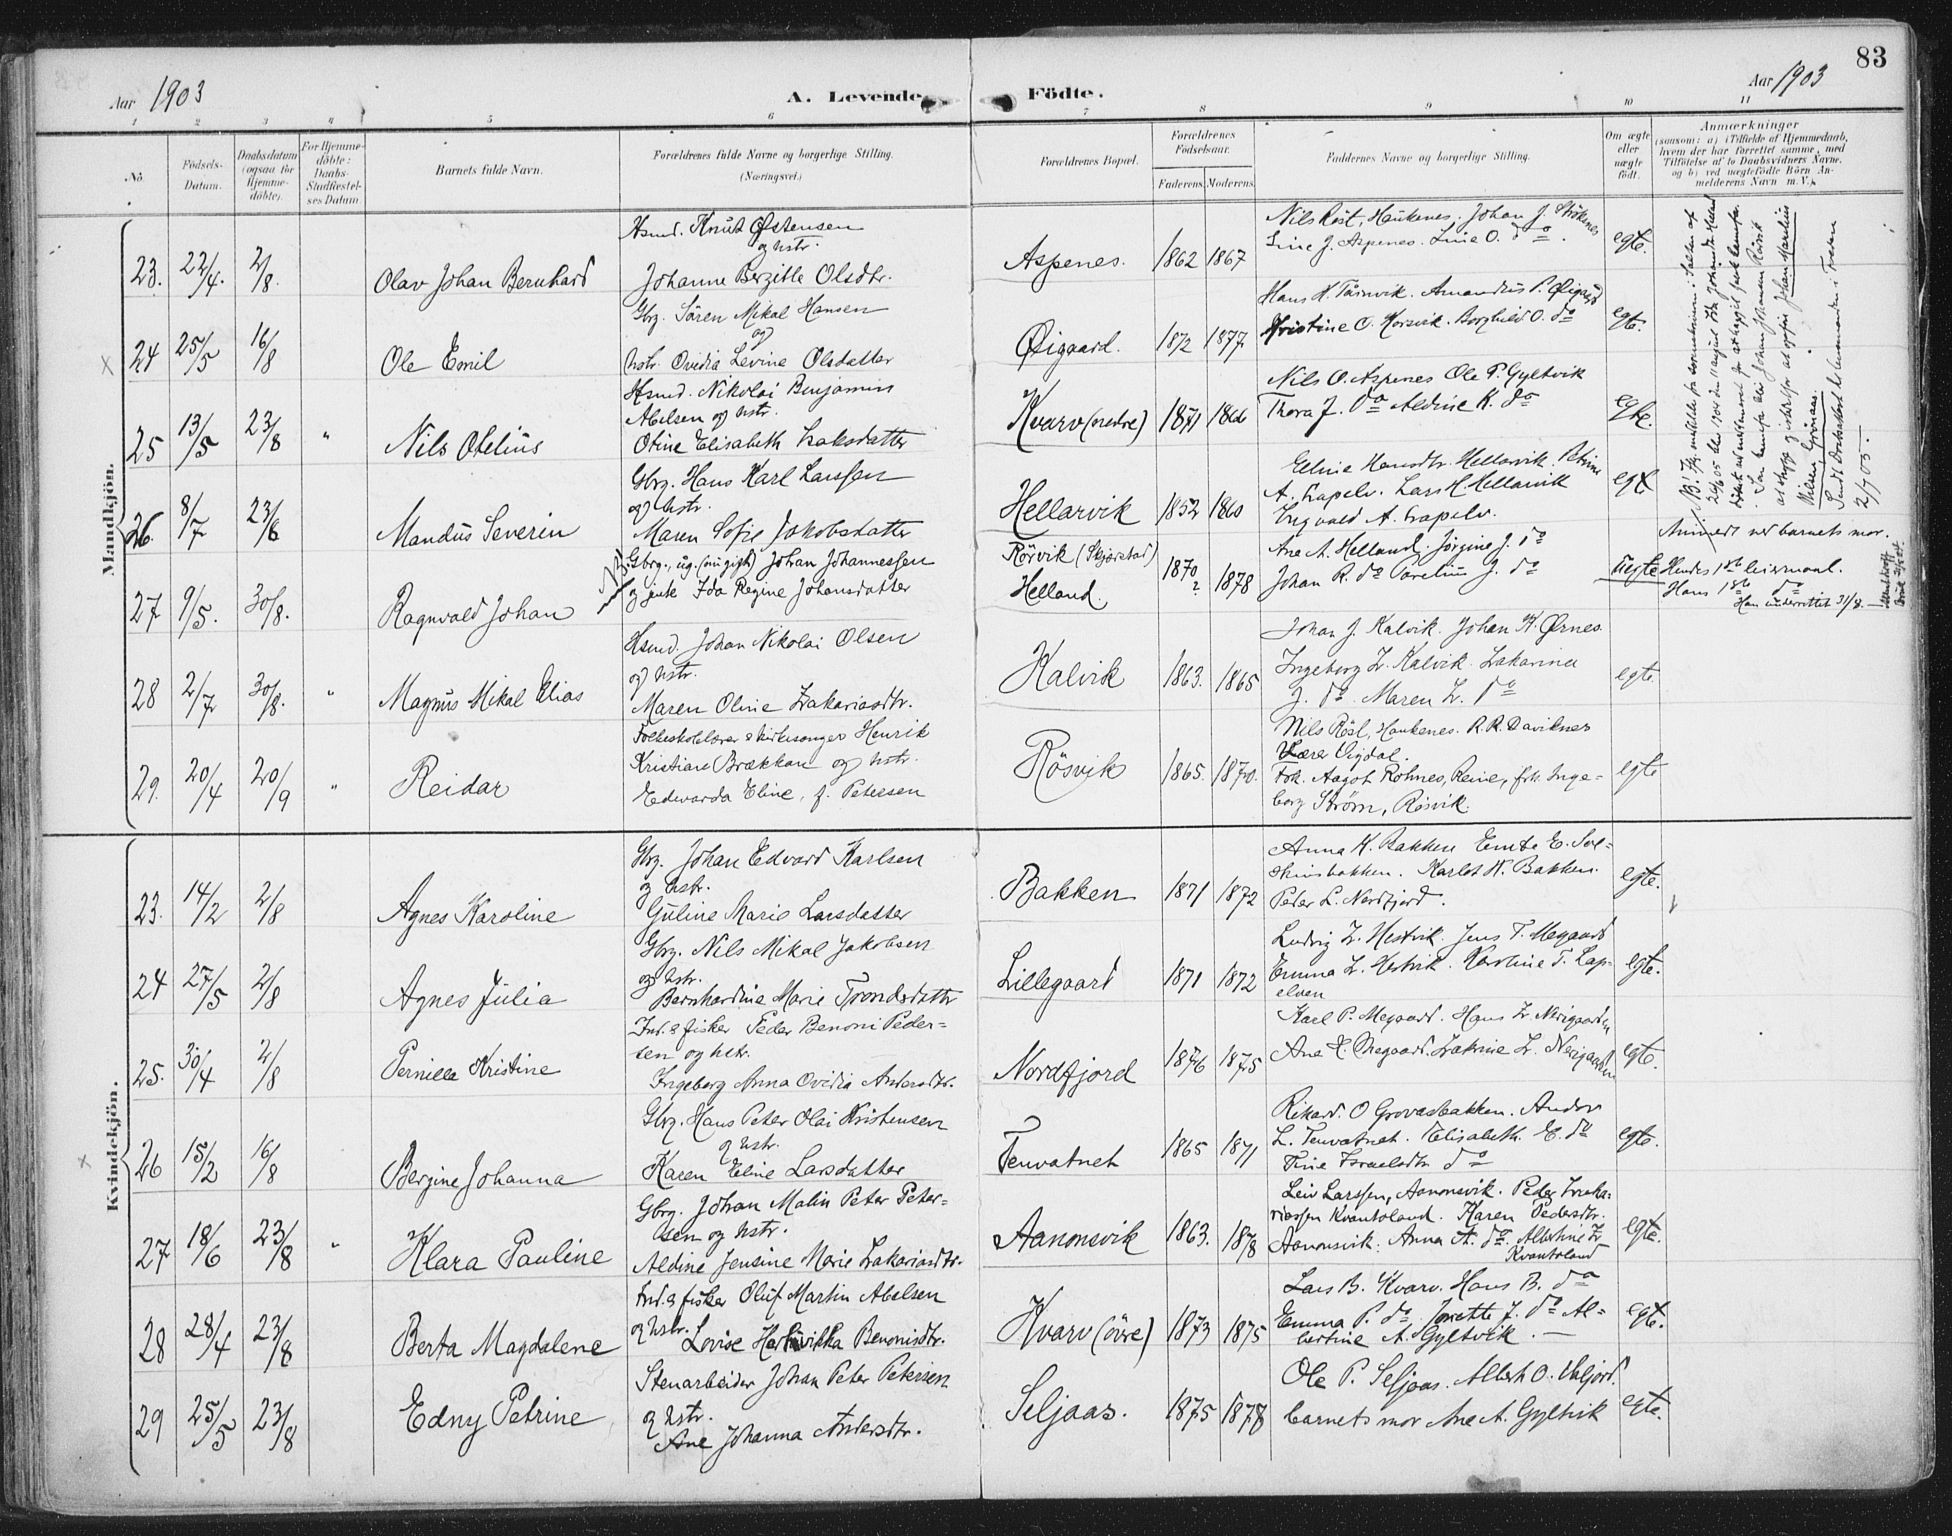 83
Aar 1903
A. Levende Födte.
Aar 1903
1 2 3 4 5 6 7 8 9 10 11
No.
Födsels-Datum.
Daabsdatum (ogsaa for Hjemme-döbte).
For Hjemme-döbte: Daabs-Stadfæstel-ses Datum.
Barnets fulde Navn.
Forældrenes fulde Navne og borgerlige Stilling.
(Næringsvei.)
Forældrenes Bopæl.
Forældrenes Födselsaar.
Faderens. Moderens.
Faddernes Navne og borgerlige Stilling.
Om ægte eller uægte födt.
Anmærkninger
(saasom: a) i Tilfælde af Hjemmedaab, hvem der har forrettet samme, med Tilföielse af to Daabsvidners Navne, og b) ved uægtefödte Börn Anmelderens Navn m. V.).
Mandkjön.
23. 22/4. 2/8. Olav Johan Bernhard
Hsmd. Knut Østensen
og hstr.
Johanne Bergitte Olsdtr.
Aspenes. 1862 1867
Nils Røst, Haukenes. Johan J.
Line J. Aspenes. Line O. do.
egte.
24 25/5 16/8 Ole Emil
Gbrg. Sören Mikal Hansen
og
hstr. Ovidia Levine Olsdatter
Øigaard. 1872 1877
Kristine O. Korsvik. Borghild O. do
egte.
25 13/5 23/8 " Nils Otelius
Hsmd. Nikolai Benjamin
Abelsen og hstr.
Otine Elisabeth Isaksdatter
Kvarv (nedre) 1871 1866
Nils O. Aspenes Ole P. Gyltvik
Thora J. do Aldine K. do
egte.
26. 8/7 23/8 Mandus Severin
Gbrg. Hans Karl Larssen
og hstr.
Maren Sofie Jakobsdatter
Hellarvik 1852 1860
Eline Hansdtr. Hellarvik. Petrine
A. Lapelv. Lars H. Hellarvik
Ingvald A. Lapelv.
egte
27 9/5. 30/8. Ragnvald Johan
NB. Gbrg., ug. (nu gift) Johan Johannessen
og pike Ida Regine Johansdatter
Rörvik (Skjerstad)
Helland. 1870? 1878
Ane A. Helland. Jörgine J. do
Johan R. do Parelius J. do
uegte
Anmeldt ved barnets mor.
Hendes 1ste leiermaal.
Hans 1ste do
Han underrettet 31/8.
28 2/7 30/8. " Magnus Mikal Elias
Hsmd. Johan Nikolai Olsen
og hstr.
Maren Oline Zakariasdtr.
Kalvik 1863. 1865
Johan J. Kalvik. Johan K. Ørnes.
Ingeborg Z. Kalvik. Zakarina
J. do. Maren Z. do
egte.
29. 20/4 20/9 " Reidar
Folkeskolelærer & kirkesanger Henrik
Kristian Brækkan og hstr.
Edvarda Eline, f. Petersen
Rösvik 1865. 1870.
Nils Röst, Haukenes. R. R. Daviknes
Lærer Vigdal.
Frk. Aagot Rohnes, Reine, frk. Inge-
borg Strøm, Rösvik.
egte
NB!
2/7 05.
Kvindekjön.
23. 14/2 2/8 Agnes Karoline
Gbrg. Johan Edvard Karlsen
og hstr.
Guline Marie Larsdatter
Bakken 1871 1872
Anna K. Bakken
Karlot K. Bakken.
Peder L. Nordfjord.
egte.
24 27/5 2/8 Agnes Julia
Gbrg. Nils Mikal Jakobsen
og hstr.
Bernhardine Marie Trondsdatter
Lillegaard 1871 1872
Ludvig Z. Hestvik. Jens T. Megaard
Emma Z. Hestvik. Karoline T. Lap-
elven
egte.
25. 30/4 2/8 Pernille Kristine
Ind. & fisker Peder Benoni Peder-
sen og hstr.
Ingeborg Anna Ovidia Andersdtr.
Nordfjord 1876 1875
Karl P. Megaard. Hans Z. Nerigaarden
Ane E. Megaard. Zakrine Z. Nerigaarden
egte.
26 15/2 16/8 Bergine Johanna
Gbrg. Hans Peter Olai Kristensen
og hstr.
Karen Eline Larsdatter
Tenvatnet 1865 1871
Rikard O Grovasbakken. Andor
L. Tenvatnet. Elisabeth E. do
Tine Israelsdtr. do
egte.
27 18/6 23/8 " Klara Pauline
Gbrg. Johan Malin Peter Peter-
sen og hstr.
Aldine Jensine Marie Zakariasdtr.
Aanonsvik 1863. 1878
Leiv Larssen, Aanonsvik. Peder Zacha-
riassen Kvantoland. Karen Pedersdtr.
Aanonsvik. Anna A. do. Albertine Z
Kvantoland
egte.
28 28/4 23/8 Berta Magdalene
Ind. & fisker Oluf Martin Abelsen
og hstr.
Lovise Hartvikka Benonisdtr.
Kvarv (övre) 1873 1875
Lars B. Kvarv. Hans B. do
Emma P. do Jonette J. do Al-
bertine A. Gyltvik.
egte.
29 25/5 23/8 Edny Petrine
Stenarbeider Johan Peter Petersen
og hstr.
Ane Johanna Andersdtr.
Seljaas. 1875 1878
Ole P. Seljaas. Albert O. Valjord.
barnets mor Ane A. Gyltvik
egte.